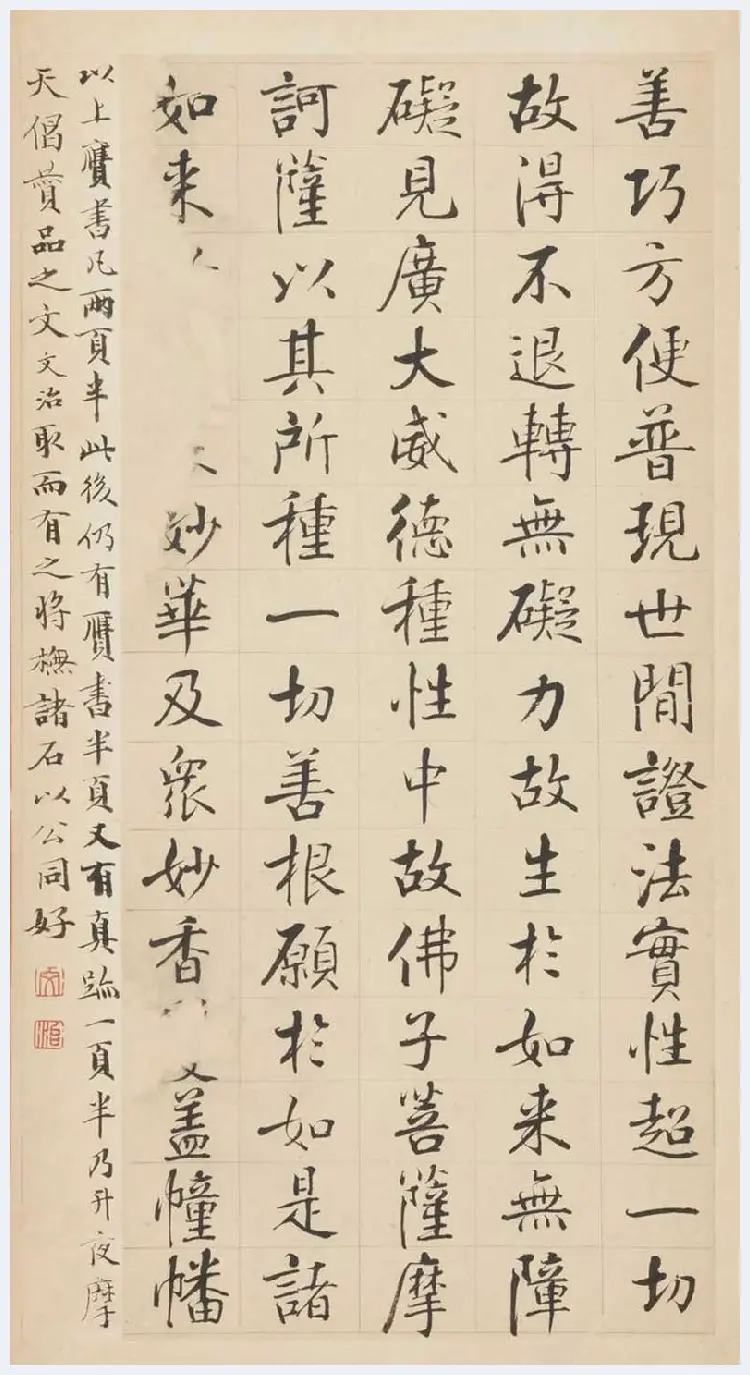 善巧方便普現世間證法實性超一切
故得不退轉無礙力故生於如来無障
礙見廣大威德種性中故佛子菩薩摩
訶薩以其所種一切善根願於如是諸
如来妙華及衆妙香蓋幢幡
以上贗書凡兩頁半此後仍有贗書半頁又有真跡一頁半乃升夜摩
天偈贊品之文文治取而有之將橅諸石以公同好
文治